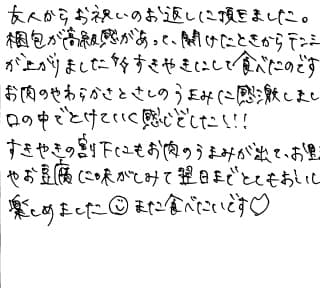 友人からお祝いのお返しに頂きました。
梱包が高級感があって、開けたときからテンシ
が上がりました すきやきにして食べたのです
お肉のやわらかさとさしのうまみに感激しまし
口の中でとけていく感じでした!!
すきやきの割下にもお肉のうまみが出て、お
やお豆腐に味がしみて翌日までとてもおいし
楽しめました☺また食べたいです♡